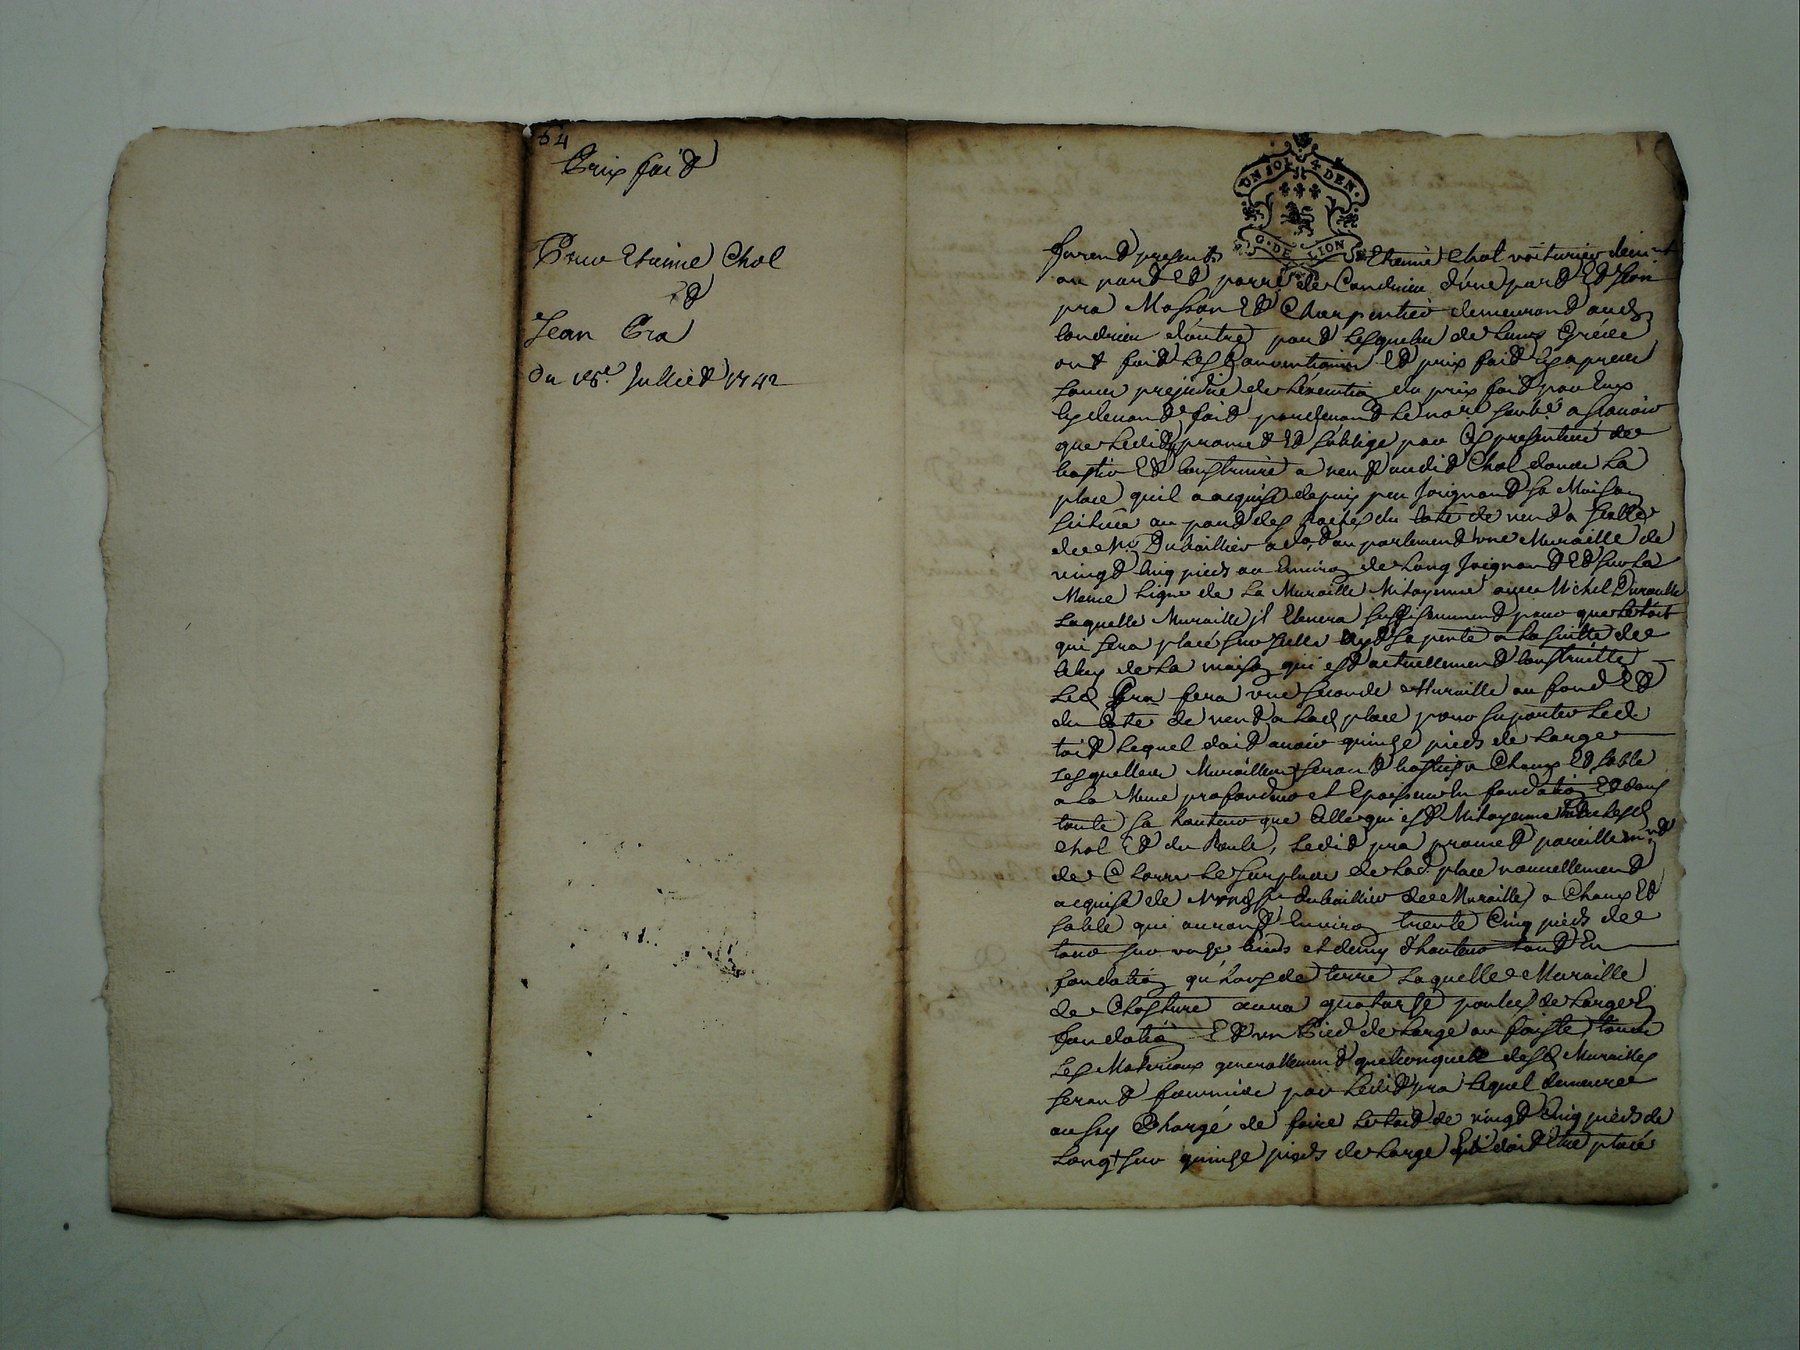 54
Prix fait
Pour Etienne Chol
Et
Jean Pra
Du 18e. Julliet 1742
UN SOL 4 DEN.
G. DE LION
furent presents Etienne Chol voiturier dem.nt
au port Et parre de Condrieu d'une part Et Jean
pra Masson Et Charpentier demeurant aud
Condrieu d'autre part Lesquels de Leurs Gréées
ont fait Les Conventions Et prix fait cy apres
sans prejudice de Lexecution du prix fait par Eux
cydevant fait pardevant Le no.re soubs.é a scavoir
que Ledit pra promet Et soblige par Ces presentes de
bastir Et Construire a vent audit Chol dans La
place quil a acquise depuis peu Joignant Sa Maison
scituée au port des du Coté de vent a Celle
de Mr. Dubaillier avocat au parlement une Muraille de
vingt Cinq pieds ou Environ de Long Joignant Et sur La
Meme Ligne de La Muraille Mitoyenne avec Michel
Laquelle Muraille jl Elevera suffisamment pour que Le toit
qui sera placé sur Jcelle ayt sa pente a La suitte de
Celuy de La maison qui est actuellement Construitte
Led Pra fera une seconde Muraille au fond Et
du Coté de vent a Lad place pour suporter Led
toit Lequel doit avoir quinze pieds de Large
Lesquelles Murailles seront basties a Chaux Et sable
a La Meme profondeur et Epaisseur En fondation Et dans
toute sa hauteur que Celle qui est Mitoyenne Entre Lesd
Chol Et du Roule, Ledit pra promet pareillem.nt
de Clorre Le surplus de Lad. place nouvellement
acquise de dubaillier de Murailles a Chaux Et
sable qui auront Environ trente Cinq pieds de
tour sur onze pieds et demy d'hauteur tant En
fondation qu'hors de terre Laquelle Muraille
de Closture aura quatorze pouces de Large En
fondation Et un Pied de Large au faiste, tous
Les Materiaux generallement quelconques desd Murailles
seront fournies par Ledit pra Lequel demeure
aussy Chargé de faire Le toit de vingt Cinq pieds de
Long sur quinze pieds de Large qui doit Etre placé